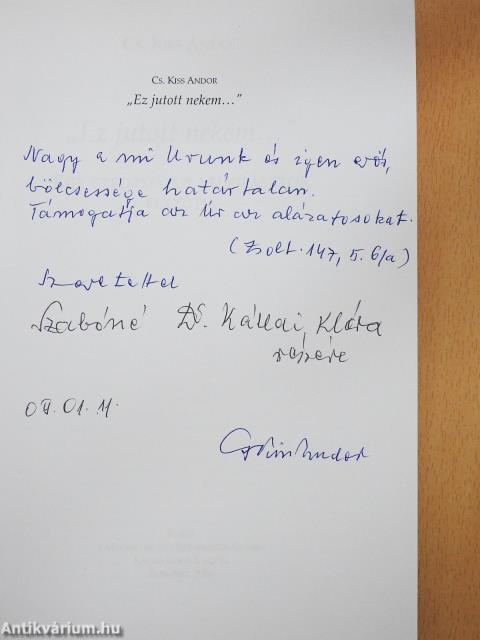 Cs. Kiss Andor
„Ez jutott nekem…”
Nagy a mi Urunk és igen erős,
bölcsessége határtalan.
Támogatja az Úr az alázatosokat.
(Zsolt. 147, 5. 6/a)
Szeretettel
Szabóné Dr. Kállai Klára
részére
01. 11.
Antikvárium.hu